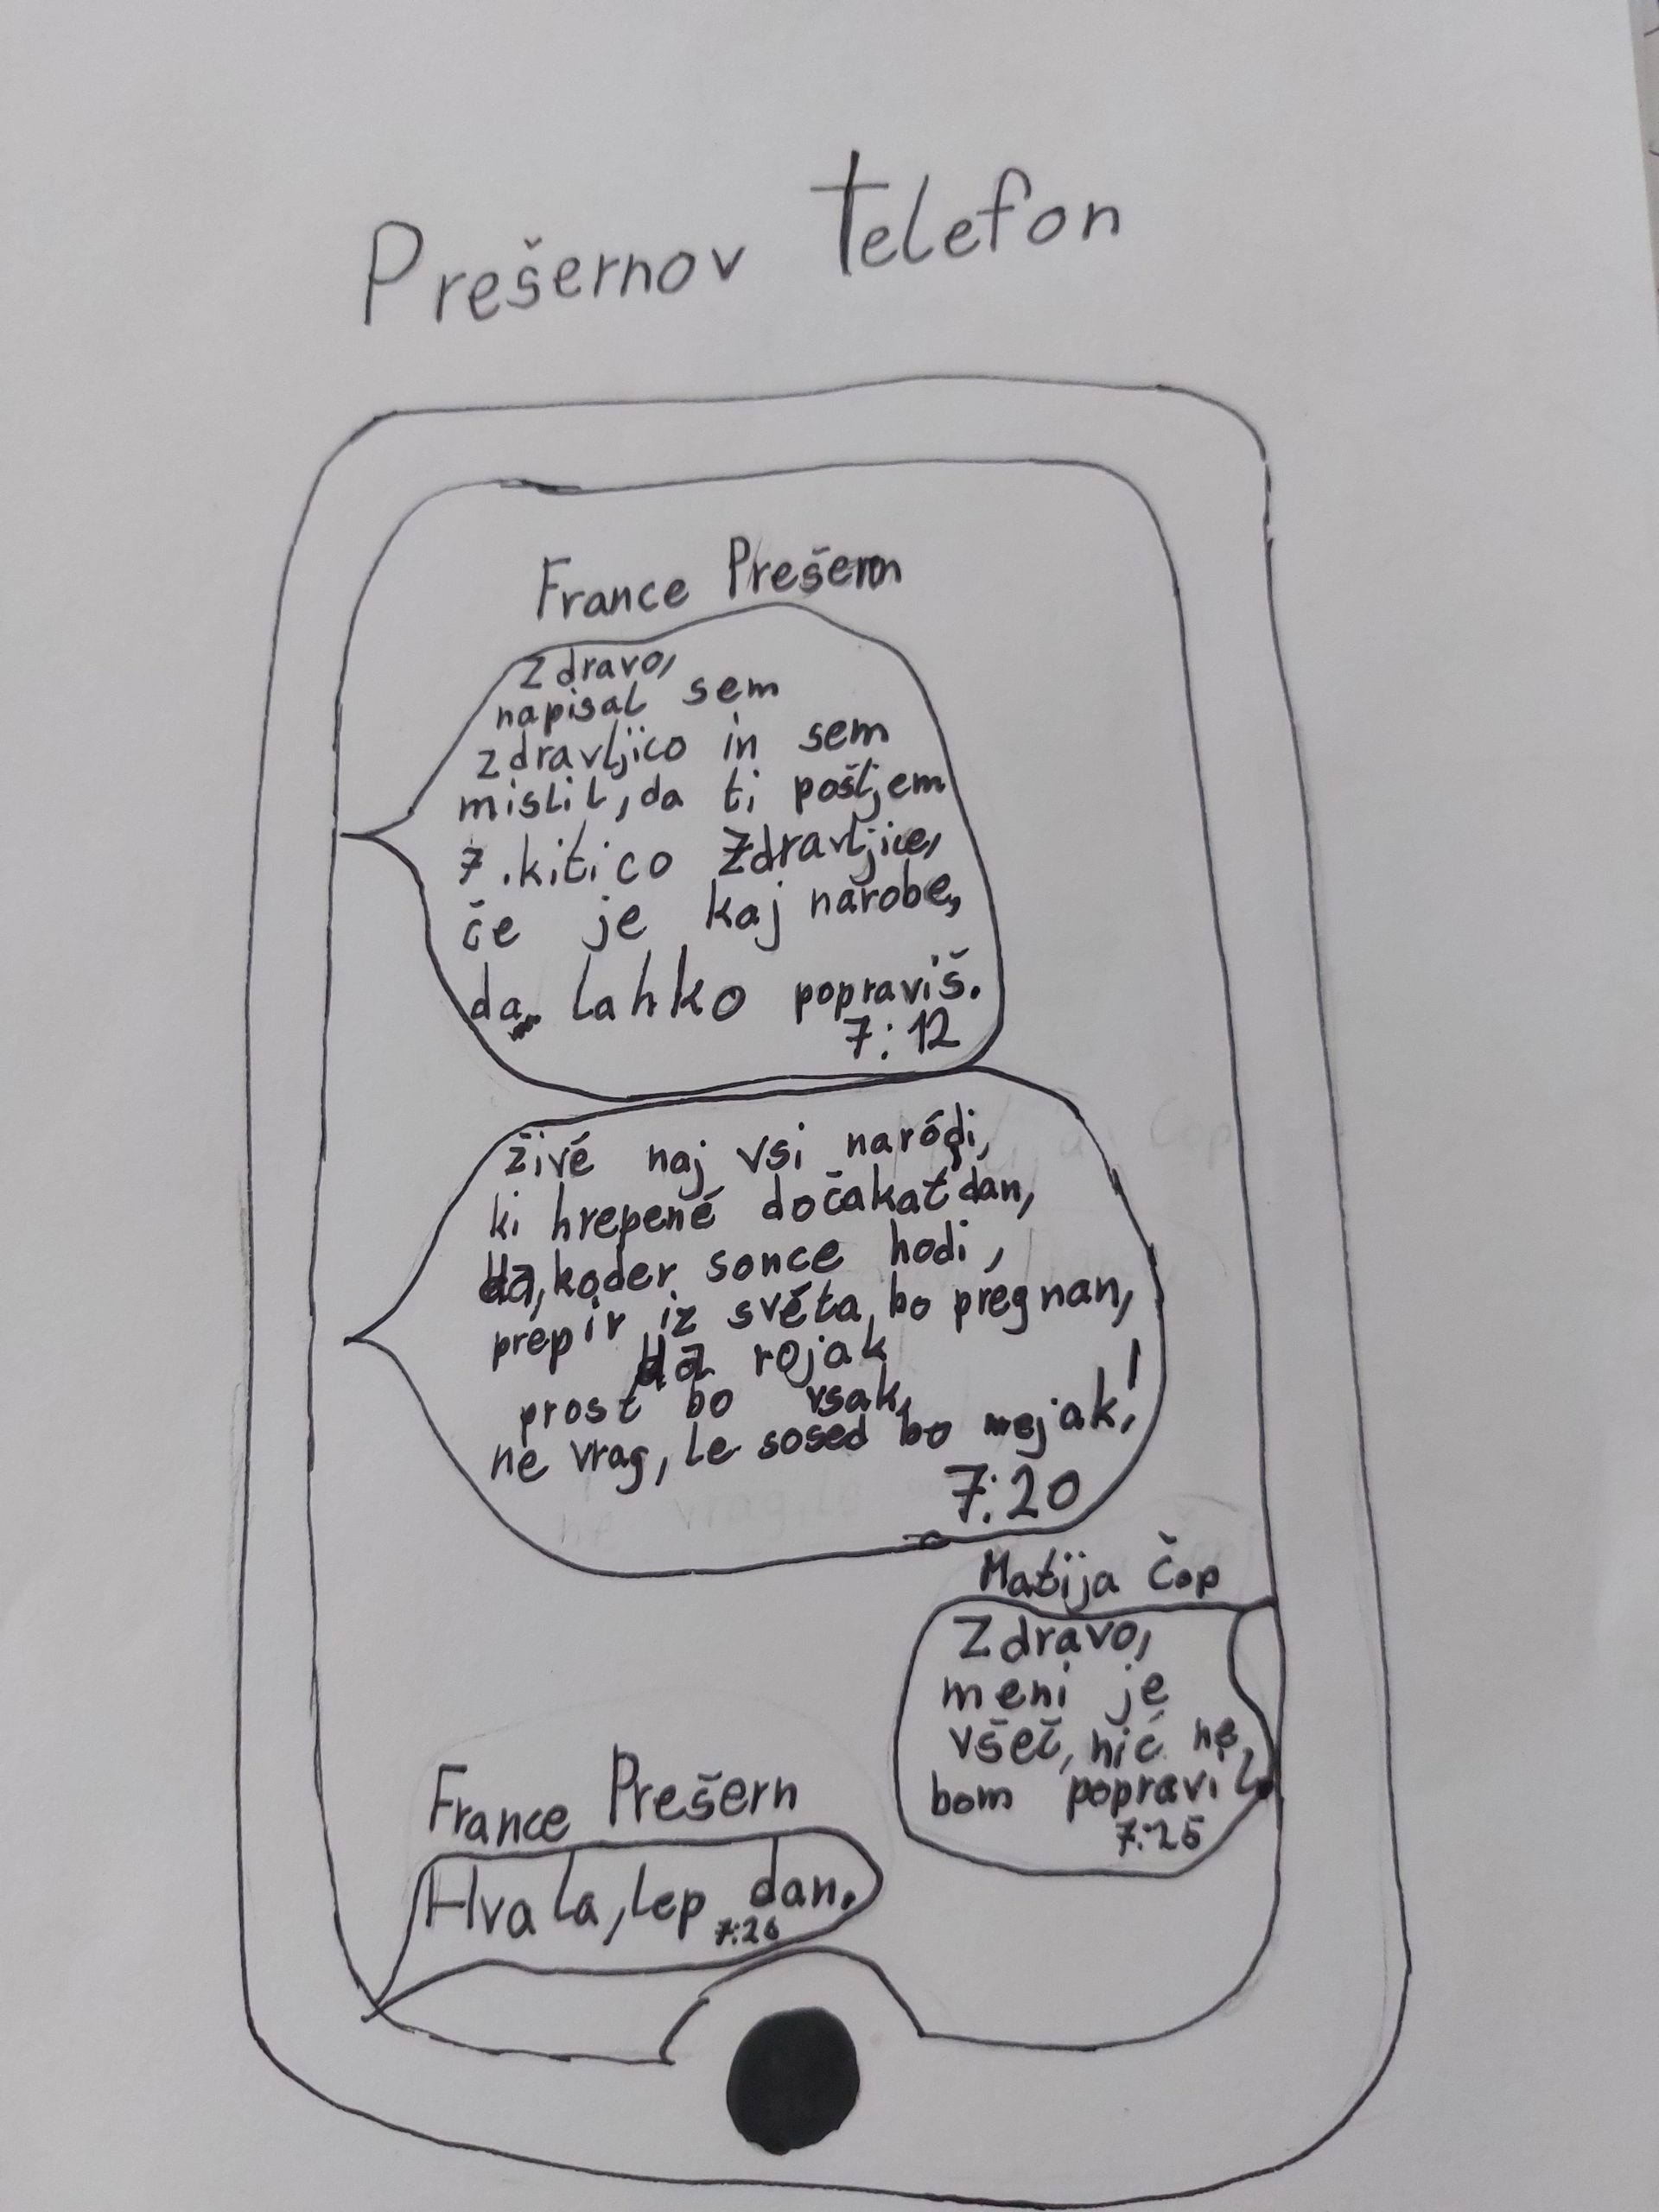 Prešernov telefon
France Prešern
Zdravo,
napisal sem
zdravljico in sem
mislil, da ti pošljem
7. kitico Zdravljice,
če je kaj narobe,
da lahko popraviš.
7:12
živé naj vsi naródi,
ki hrepené dočakat dán,
da, koder sonce hodi,
prepir iz svéta bo pregnan,
da rojak
prost bo vsak,
ne vrag, le sosed bo mejak!
7:20
Matija Čop
Zdravo,
meni je
všeč, nič ne
bom popravil.
7:25
France Prešern
Hvala, lep dan.
7:26